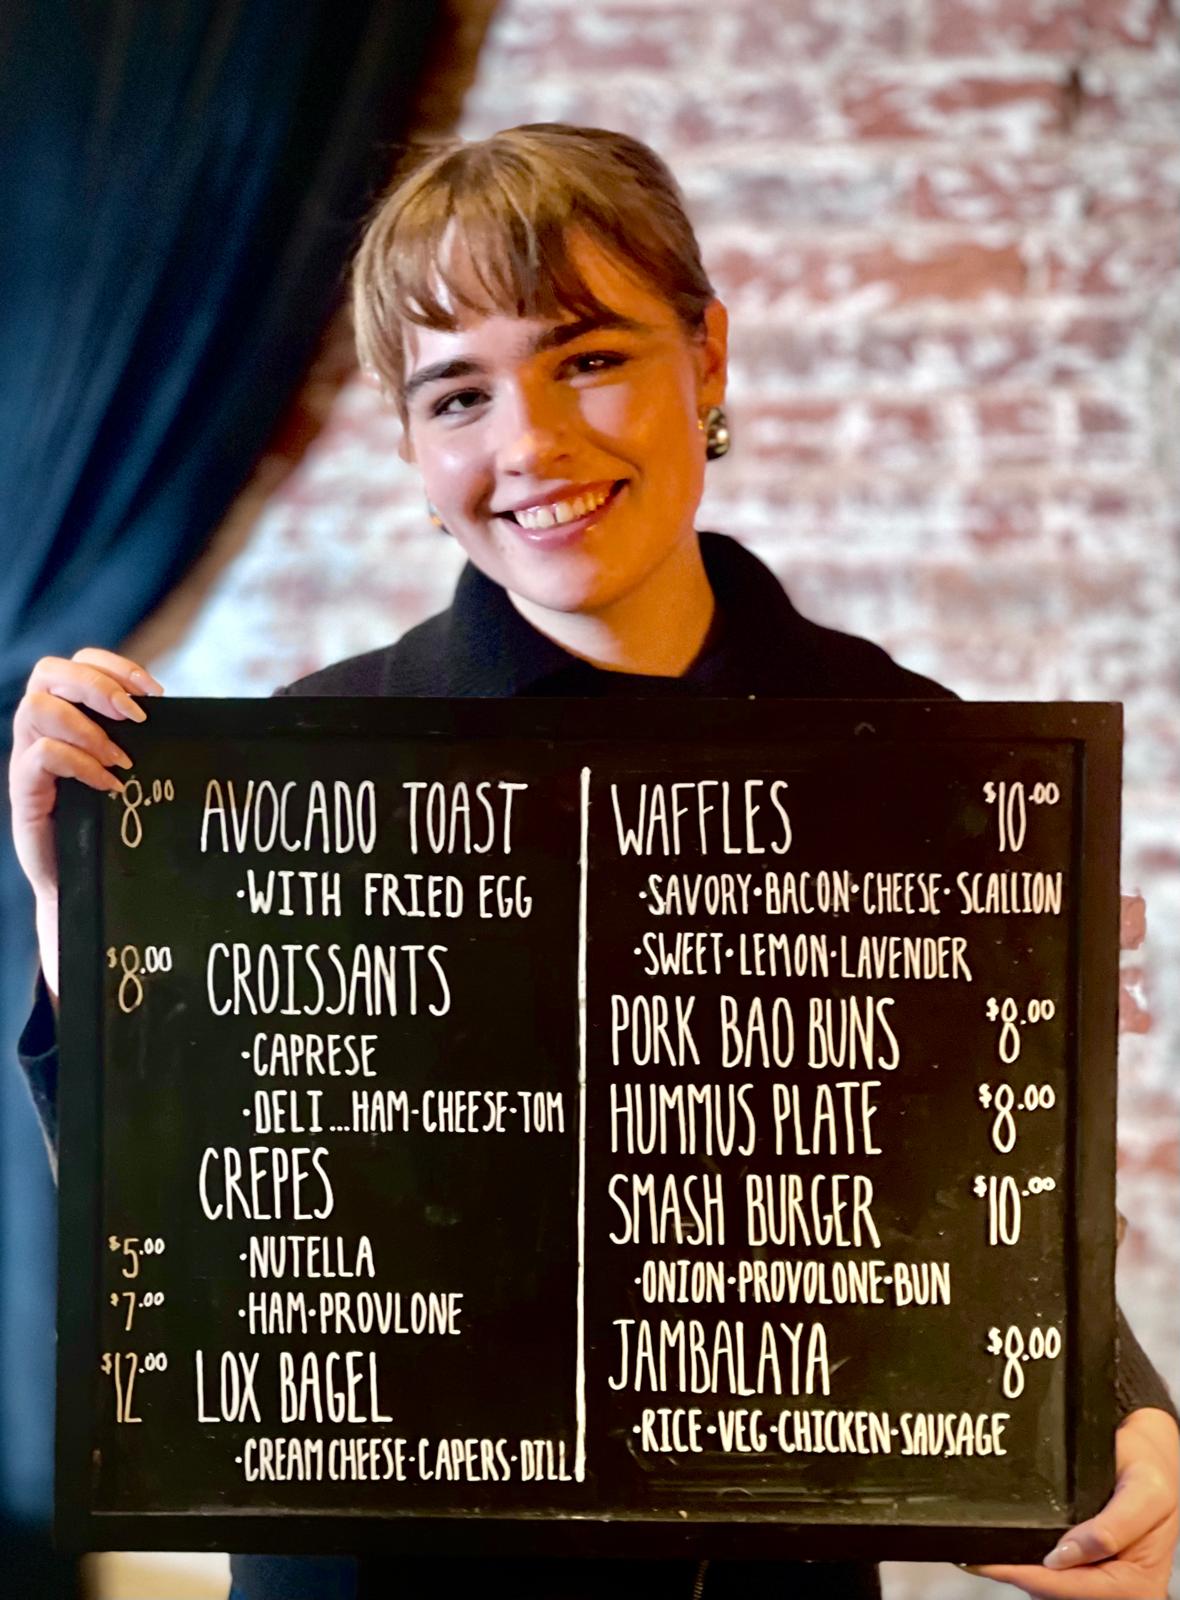 $8.00 AVOCADO TOAST
·WITH FRIED EGG
$8.00 CROISSANTS
·CAPRESE
·DELI...HAM-CHEESE-TOM
CREPES
$5.00 ·NUTELLA
$7.00 ·HAM·PROVLONE
$12.00 LOX BAGEL
·CREAM CHEESE·CAPERS·DILL
WAFFLES $10.00
·SAVORY·BACON·CHEESE·SCALLION
·SWEET·LEMON·LAVENDER
PORK BAO BUNS $8.00
HUMMUS PLATE $8.00
SMASH BURGER $10.00
·ONION·PROVOLONE·BUN
JAMBALAYA $8.00
·RICE·VEG·CHICKEN·SAUSAGE